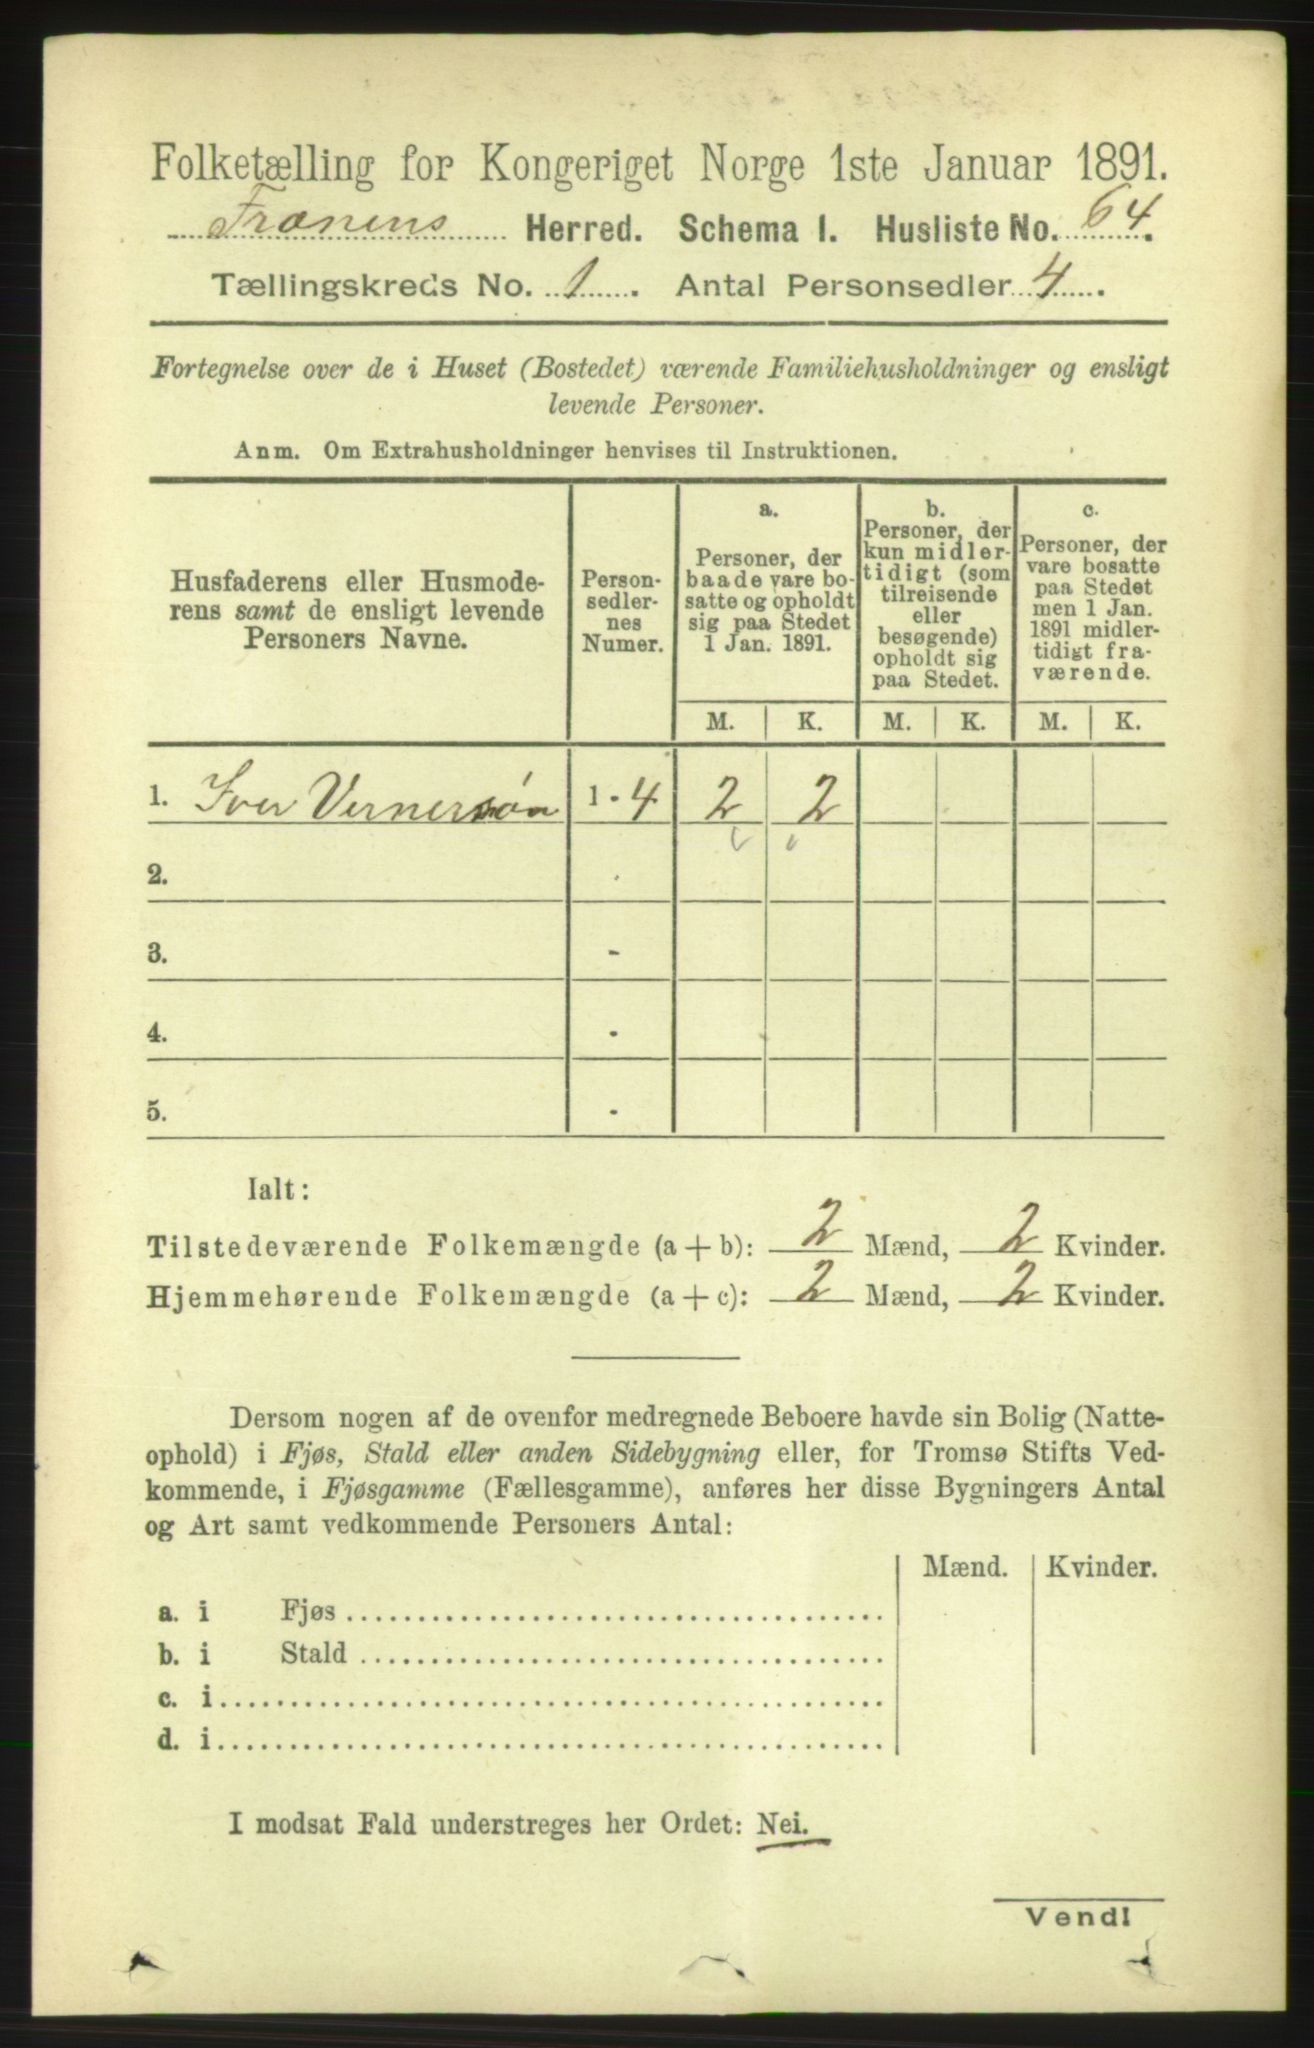 Folketælling for Kongeriget Norge 1ste Januar 1891.
Frænens Herred. Schema 1. Husliste No. 64.
Tællingskreds No. 1. Antal Personsedler 4.
Fortegnelse over de i Huset (Bostedet) værende Familiehusholdninger og ensligt
levende Personer.
Anm. Om Extrahusholdninger henvises til Instruktionen.
Husfaderens eller Husmode-
rens samt de ensligt levende
Personers Navne.
Person-
sedler-
nes
Numer.
a.
Personer, der
baade vare bo-
satte og opholdt
sig paa Stedet
1 Jan. 1891.
b.
Personer, der
kun midler-
tidigt (som
tilreisende
eller
besøgende)
opholdt sig
paa Stedet.
c.
Personer, der
vare bosatte
paa Stedet
men 1 Jan.
1891 midler-
tidigt fra-
værende.
M. K. M. K. M. K.
1. Iver Vernersøn 1 - 4 2 2
2. -
3. -
4. -
5. -
Ialt:
Tilstedeværende Folkemængde (a + b): 2 Mænd, 2 Kvinder.
Hjemmehørende Folkemængde (a + c): 2 Mænd, 2 Kvinder.
Dersom nogen af de ovenfor medregnede Beboere havde sin Bolig (Natte-
ophold) i Fjøs, Stald eller anden Sidebygning eller, for Tromsø Stifts Ved-
kommende, i Fjøsgamme (Fællesgamme), anføres her disse Bygningers Antal
og Art samt vedkommende Personers Antal:
Mænd. Kvinder.
a. i Fjøs
b. i Stald
c. i
d. i
I modsat Fald understreges her Ordet: Nei.
Vend!